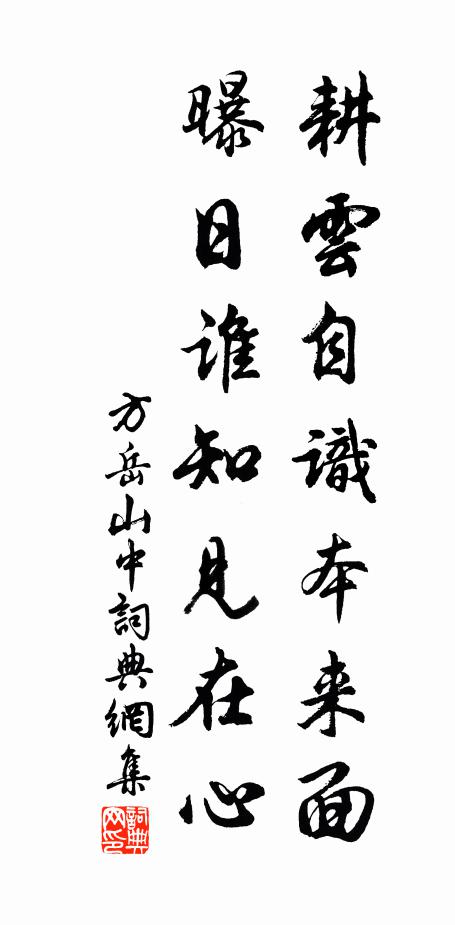 耕雲自識本来面
曝日誰知見在心
方岳山中詞典網集
詞典網印